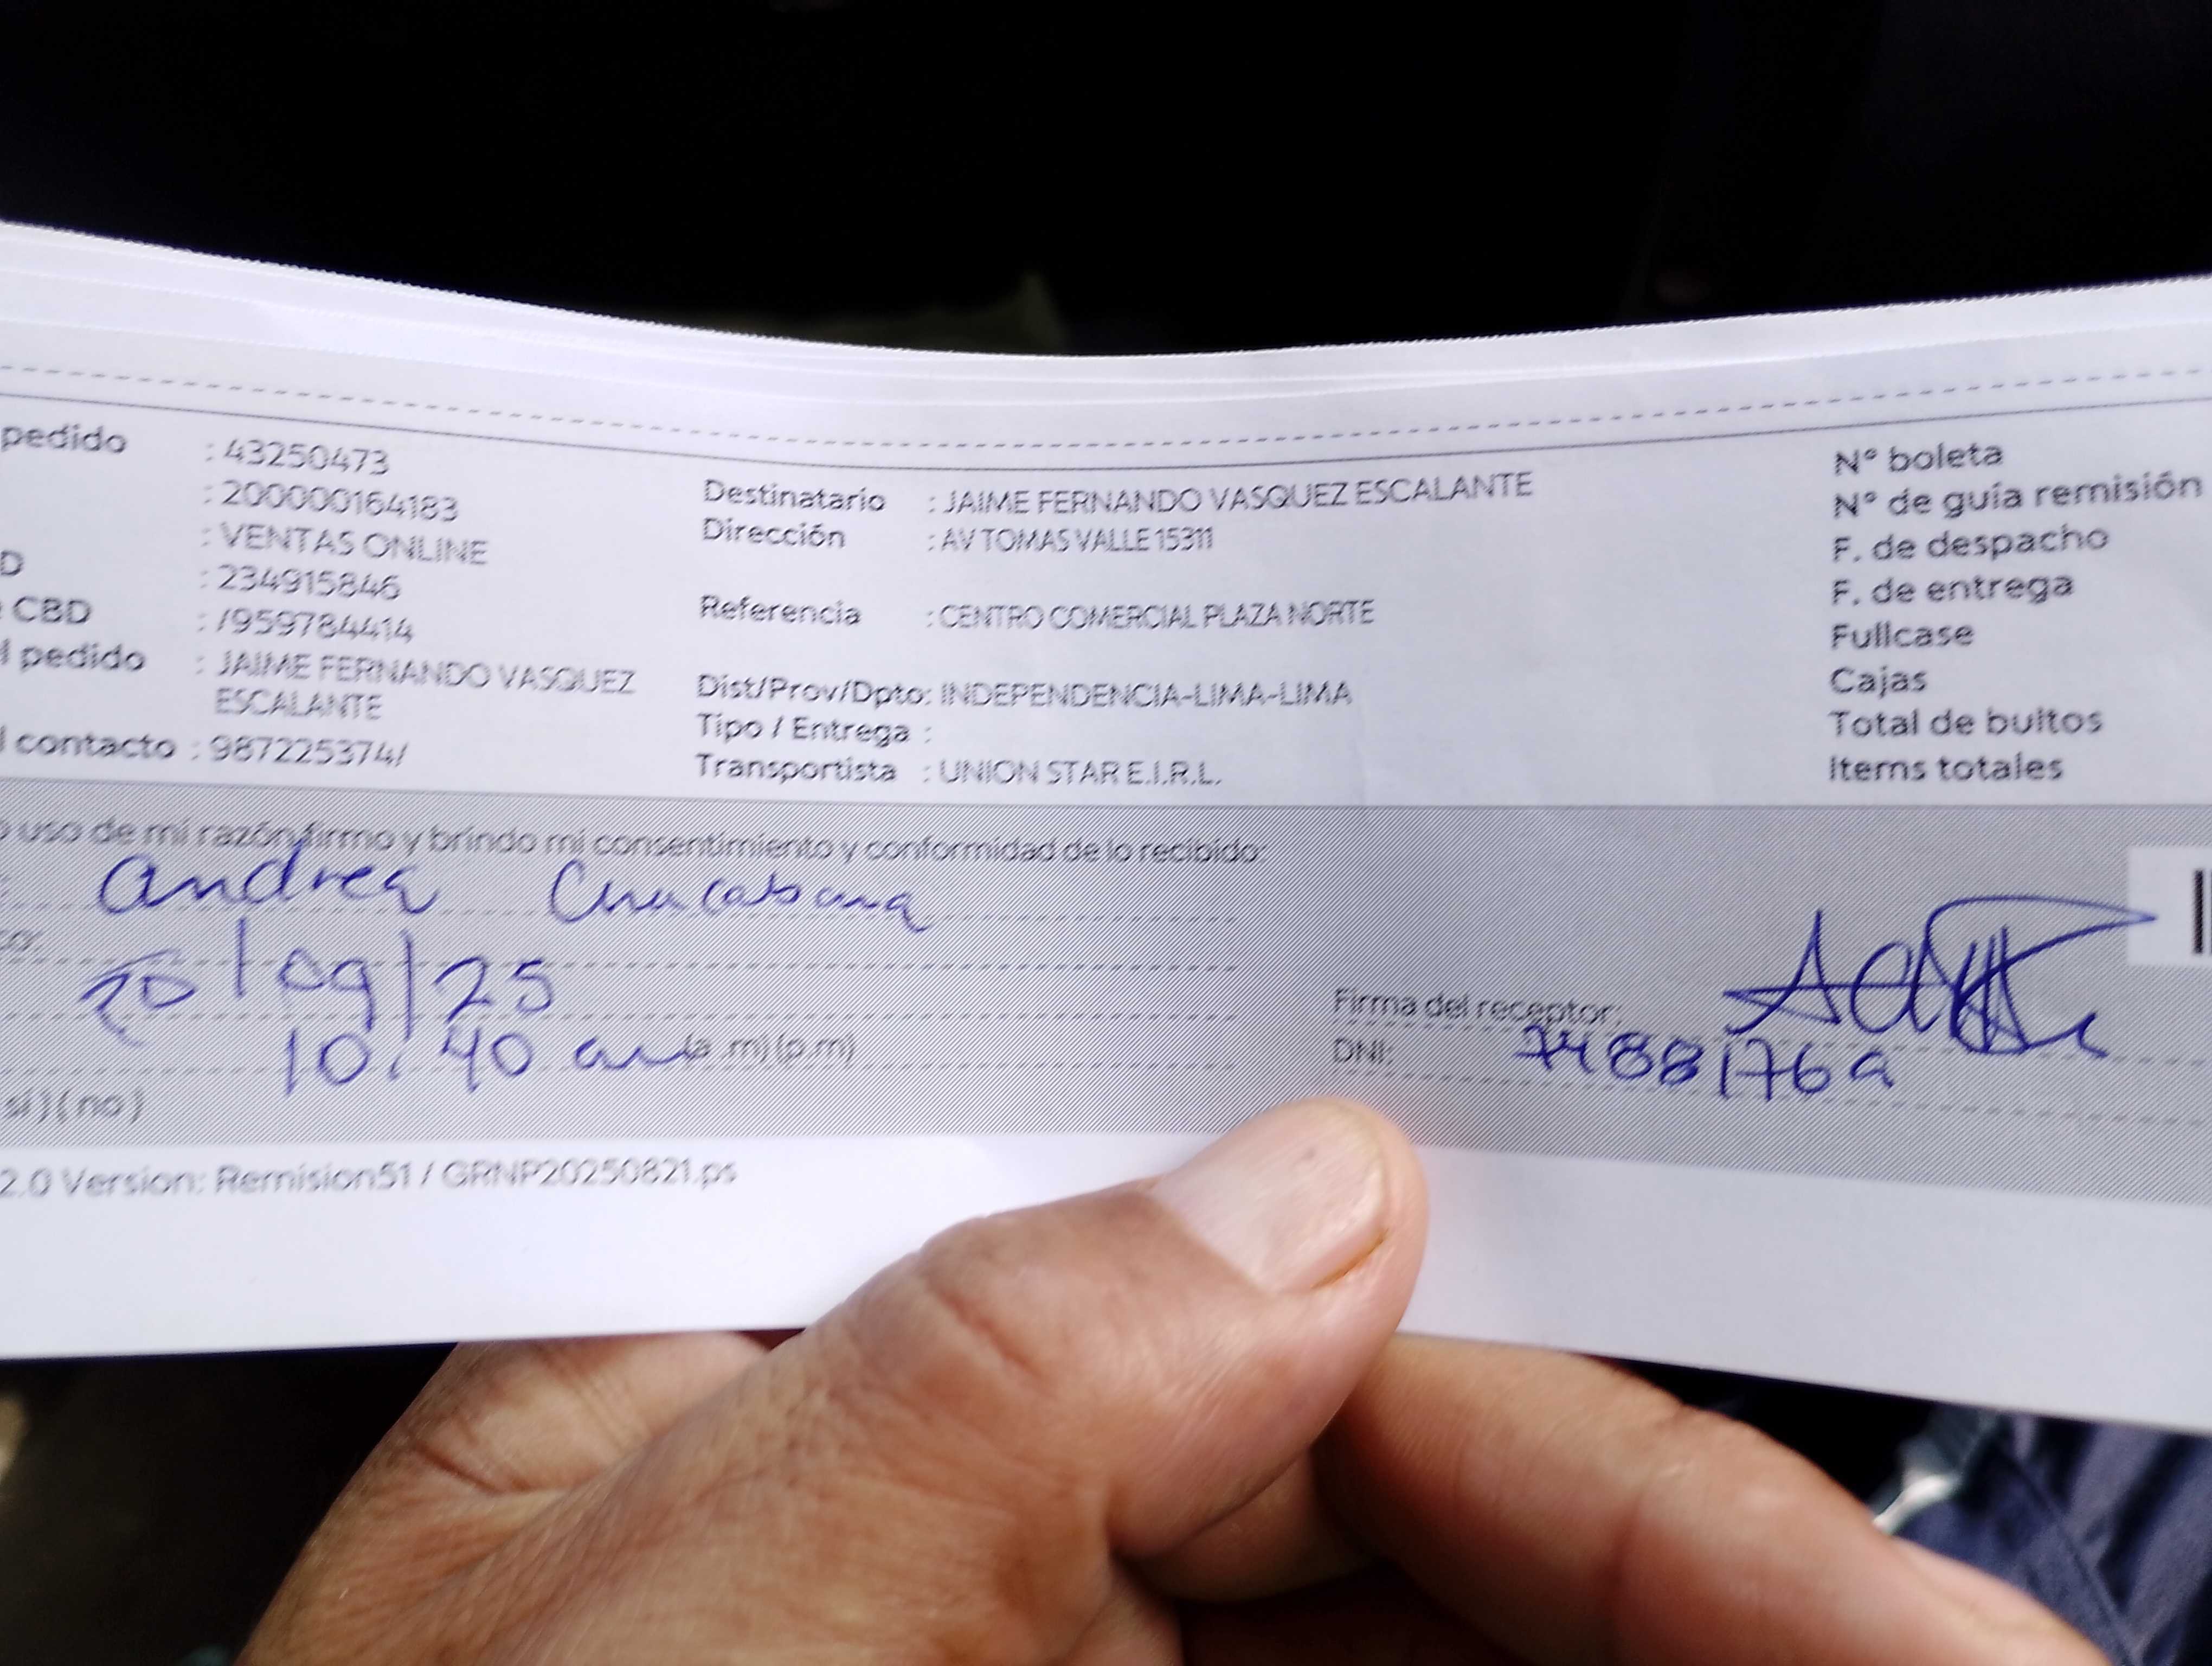 pedido : 43250473
: 200000164183
: VENTAS ONLINE
D : 234915846
CBD : /959784414
l pedido : JAIME FERNANDO VASQUEZ
ESCALANTE
l contacto : 987225374/
Destinatario : JAIME FERNANDO VASQUEZ ESCALANTE
Dirección : AV TOMAS VALLE 15311
Referencia : CENTRO COMERCIAL PLAZA NORTE
Dist/Prov/Dpto: INDEPENDENCIA-LIMA-LIMA
Tipo / Entrega :
Transportista : UNION STAR E.I.R.L.
N° boleta
N° de guia remisión
F. de despacho
F. de entrega
Fullcase
Cajas
Total de bultos
Items totales
o uso de mi razón firmo y brindo mi consentimiento y conformidad de lo recibido:
Andrea
/09/25
10:40 am (a .m) (p.m)
si ) ( no )
Firma del receptor:
DNI:
2.0 Version: Remision51 / GRNP20250821.ps